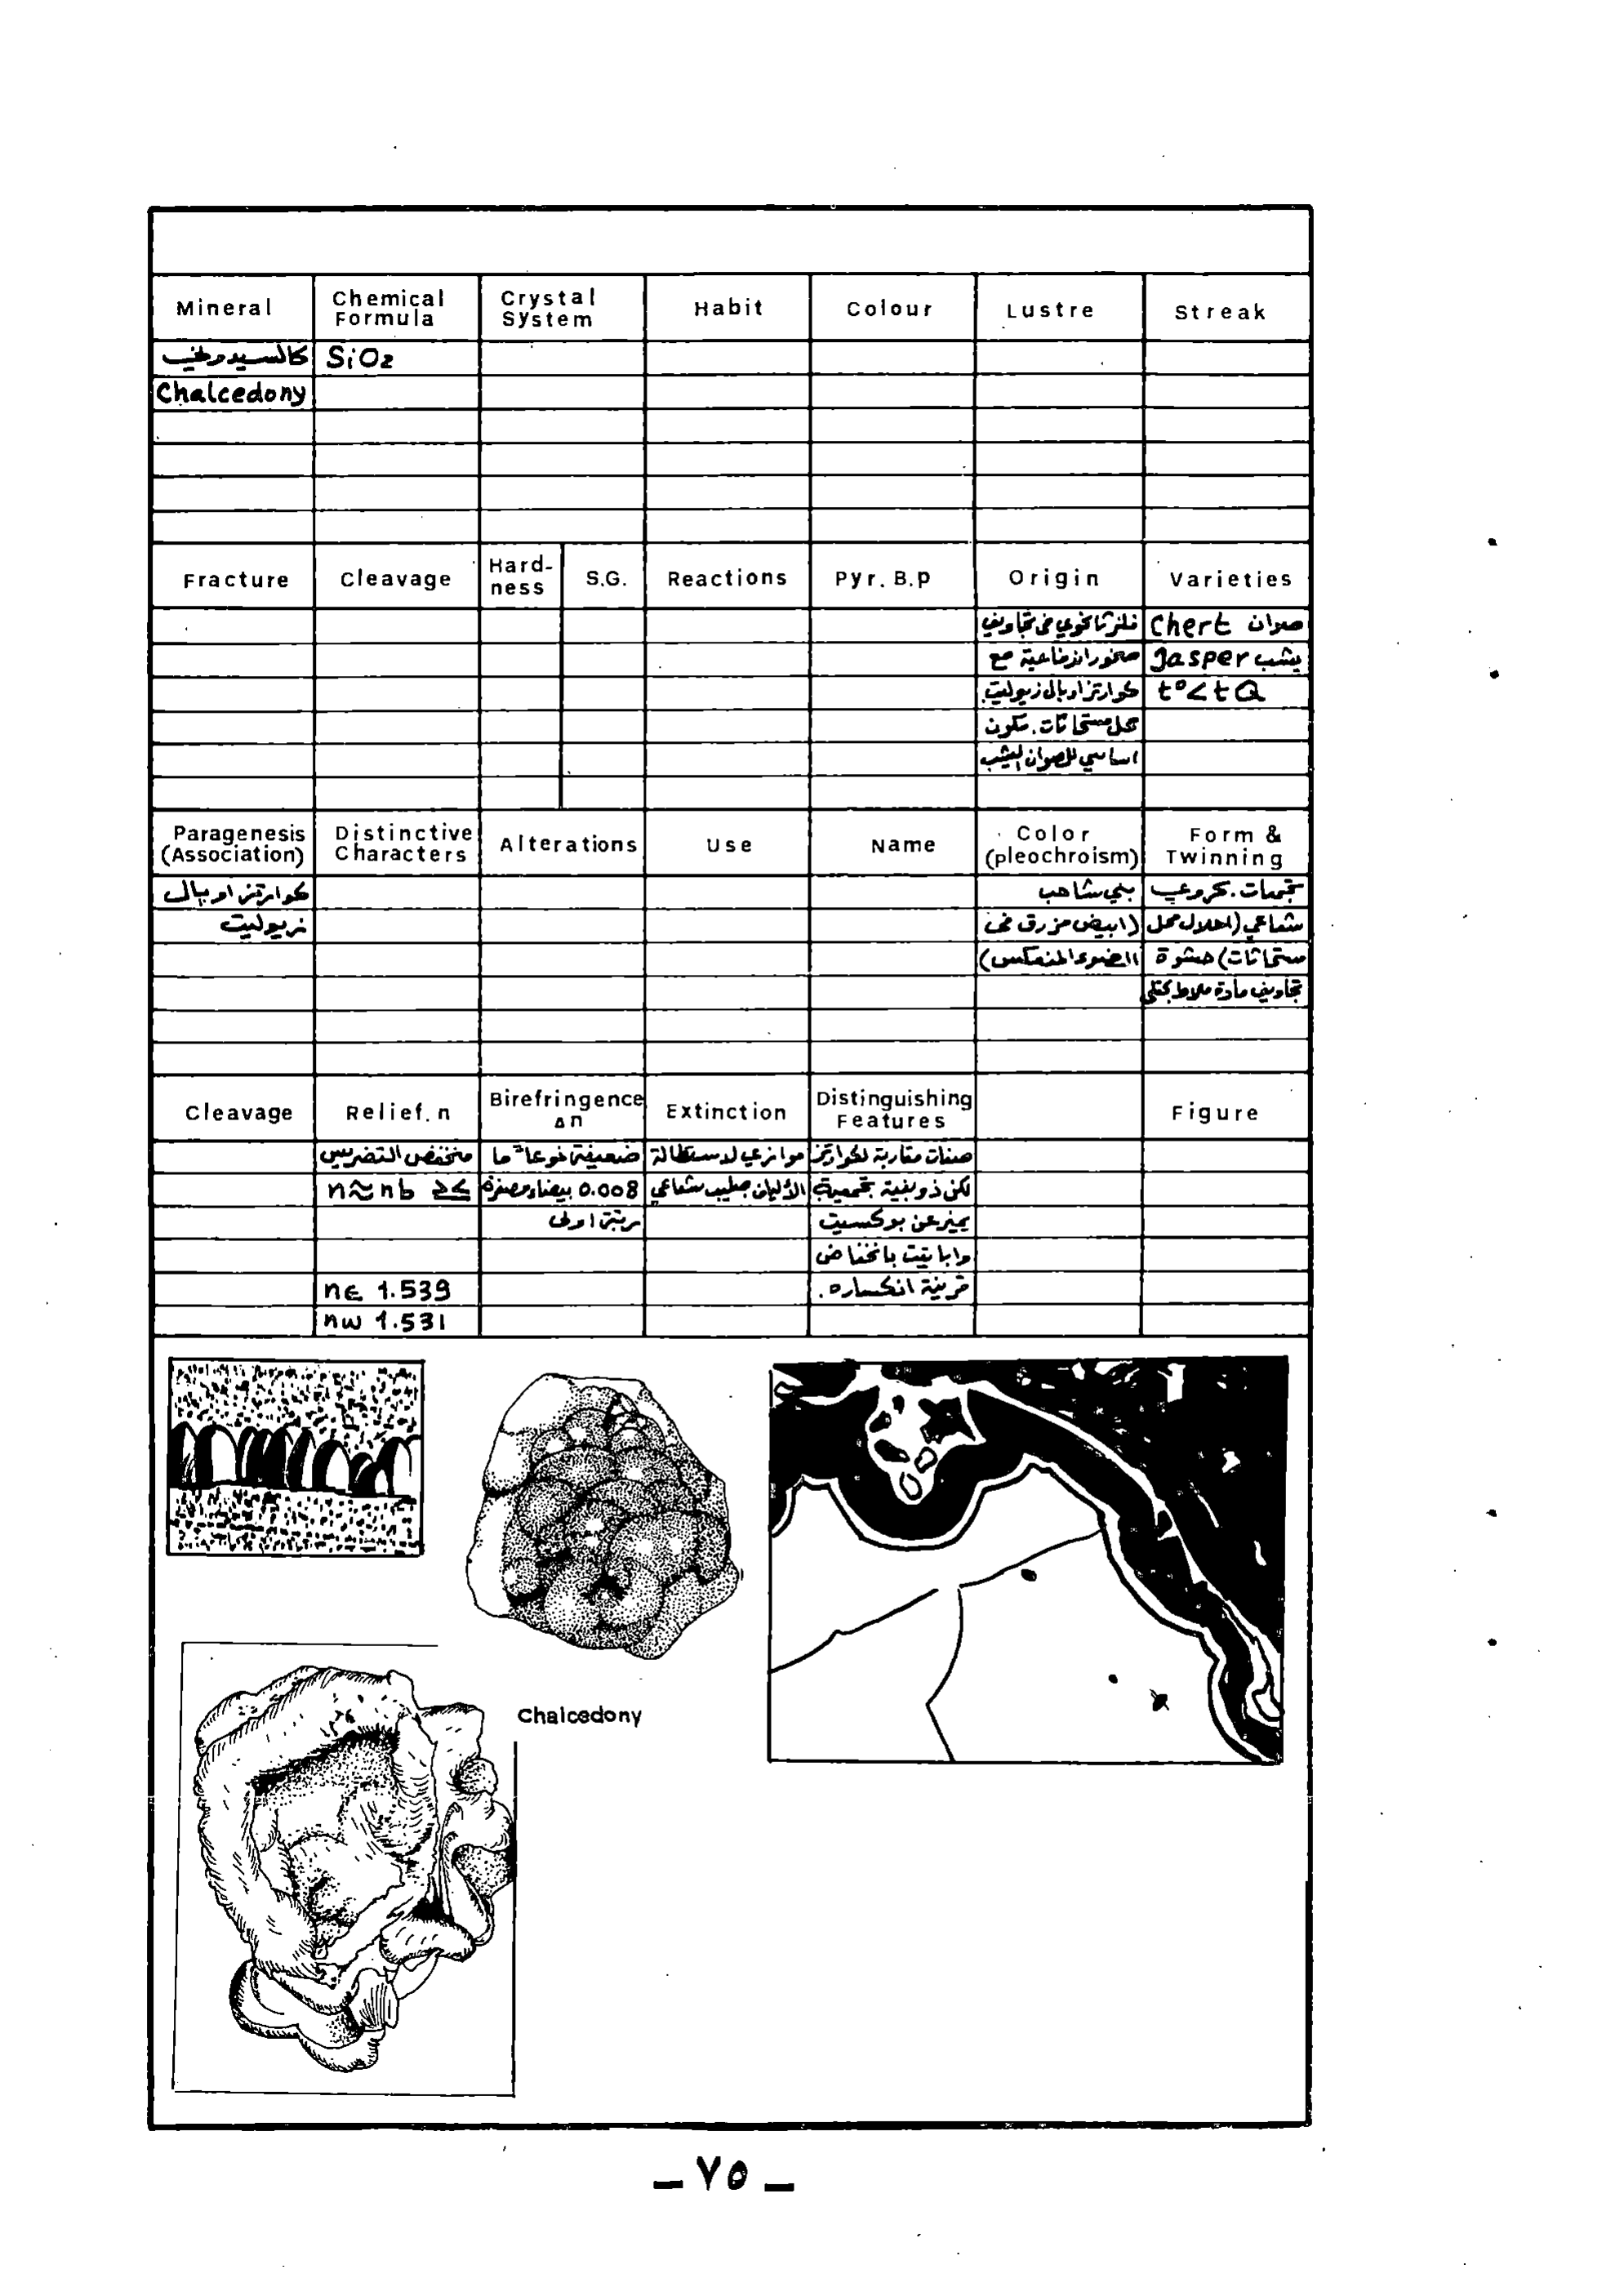 Mineral Chemical Formula Crystal System Habit Colour Lustre Streak
كالسيدوني SiO₂
Chalcedony
Fracture Cleavage Hard-ness S.G. Reactions Pyr. B.p Origin Varieties
فلز ثانوي في تجاويف Chert صوان
صخور اندفاعية مع Jasper يشب
كوارتز اوبال زيوليت t°< t Q
محل مستحاثات. مكون
اساسي للصوان اليشب
Paragenesis (Association) Distinctive Characters Alterations Use Name Color (pleochroism) Form & Twinning
كوارتز اوبال بني شاحب تجمعات.
زيوليت (ابيض مزرق في شعاعي (احلال محل
الضوء المنعكس) مستحاثات) حشوة
تجاويف مادة ملاط
Cleavage Relief. n Birefringence Δn Extinction Distinguishing Features Figure
منخفض التضريس ضعيفة نوعاً ما موازي لاستطالة صفات مقاربة لكوارتز
n≈nb ≥≤ 0.008 بيضاء مصفرة الألياف صليب شعاعي لكن ذو بنية تجمعية
رتبة اولى يميز عن بوكسيت
واباتيت بانخفاض
nε 1.539 قرينة انكساره.
nω 1.531
Chalcedony
– ٧٥ –